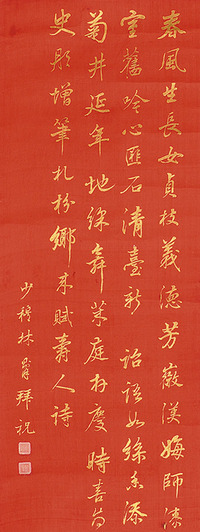 春風生長女貞枝義德芳徽漢姆師漆
室舊吟心匪石清臺新詔語如絲香添
菊井延年地綵舞萊庭慶時喜向
史彤增筆札枌鄉來賦壽人詩
少穆林拜祝